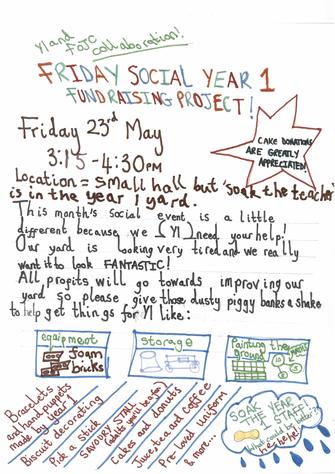 Y1 and
FOTC collaboration!
FRIDAY SOCIAL YEAR 1
FUNDRAISING PROJECT!
Friday 23rd May
3:15 - 4:30pm
CAKE DONATIONS
ARE GREATLY
APPRECIATED!
Location = small hall but 'soak the teacher'
is in the year 1 yard.
This month's social event is a little
different because we (Y1) need your help!
Our yard is looking very tired and we really
want it to look FANTASTIC!
All profits will go towards improving our
yard so please give those dusty piggy banks a shake
to help get things for Y1 like:
equipment
foam
bricks
storage
Painting the
ground
Bracelets
and hand puppets
made by year 1
Biscuit decorating
Pick a stick
SAVOURY STALL
Cakes and donuts
Juice, tea and coffee
Pre-loved uniform
& more...
SOAK THE YEAR
1 STAFF!
What could be
better?
he he he!